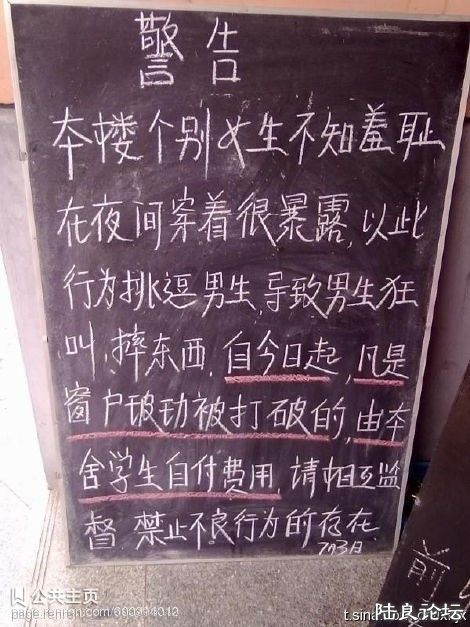 警告
本楼个别女生不知羞耻
在夜间穿着很暴露,以此
行为挑逗男生,导致男生狂
叫,摔东西,自今日起,凡是
窗户玻功被打破的,由本
舍学生自付费用,请相互监
督 禁止不良行为的存在.
前
公共主页
page.renren.com/600914012
t.sina
陆良论坛